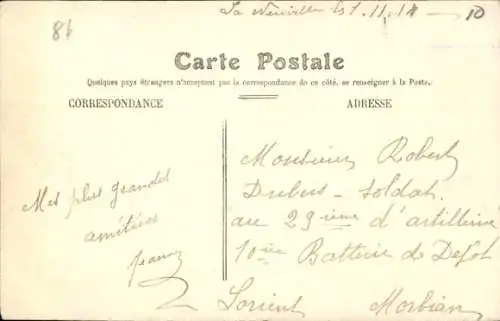 86
La Neuville est 1.11.14 — 10
Carte Postale
Quelques pays étrangers n'acceptant pas la correspondance de ce côté, se renseigner à la Poste.
CORRESPONDANCE
ADRESSE
Mes plus grandes
amitiées
Monsieur Robert
Drebus - Soldat
au 29ième d'artillerie
10ème Batterie de Depot
Lorient Morbian